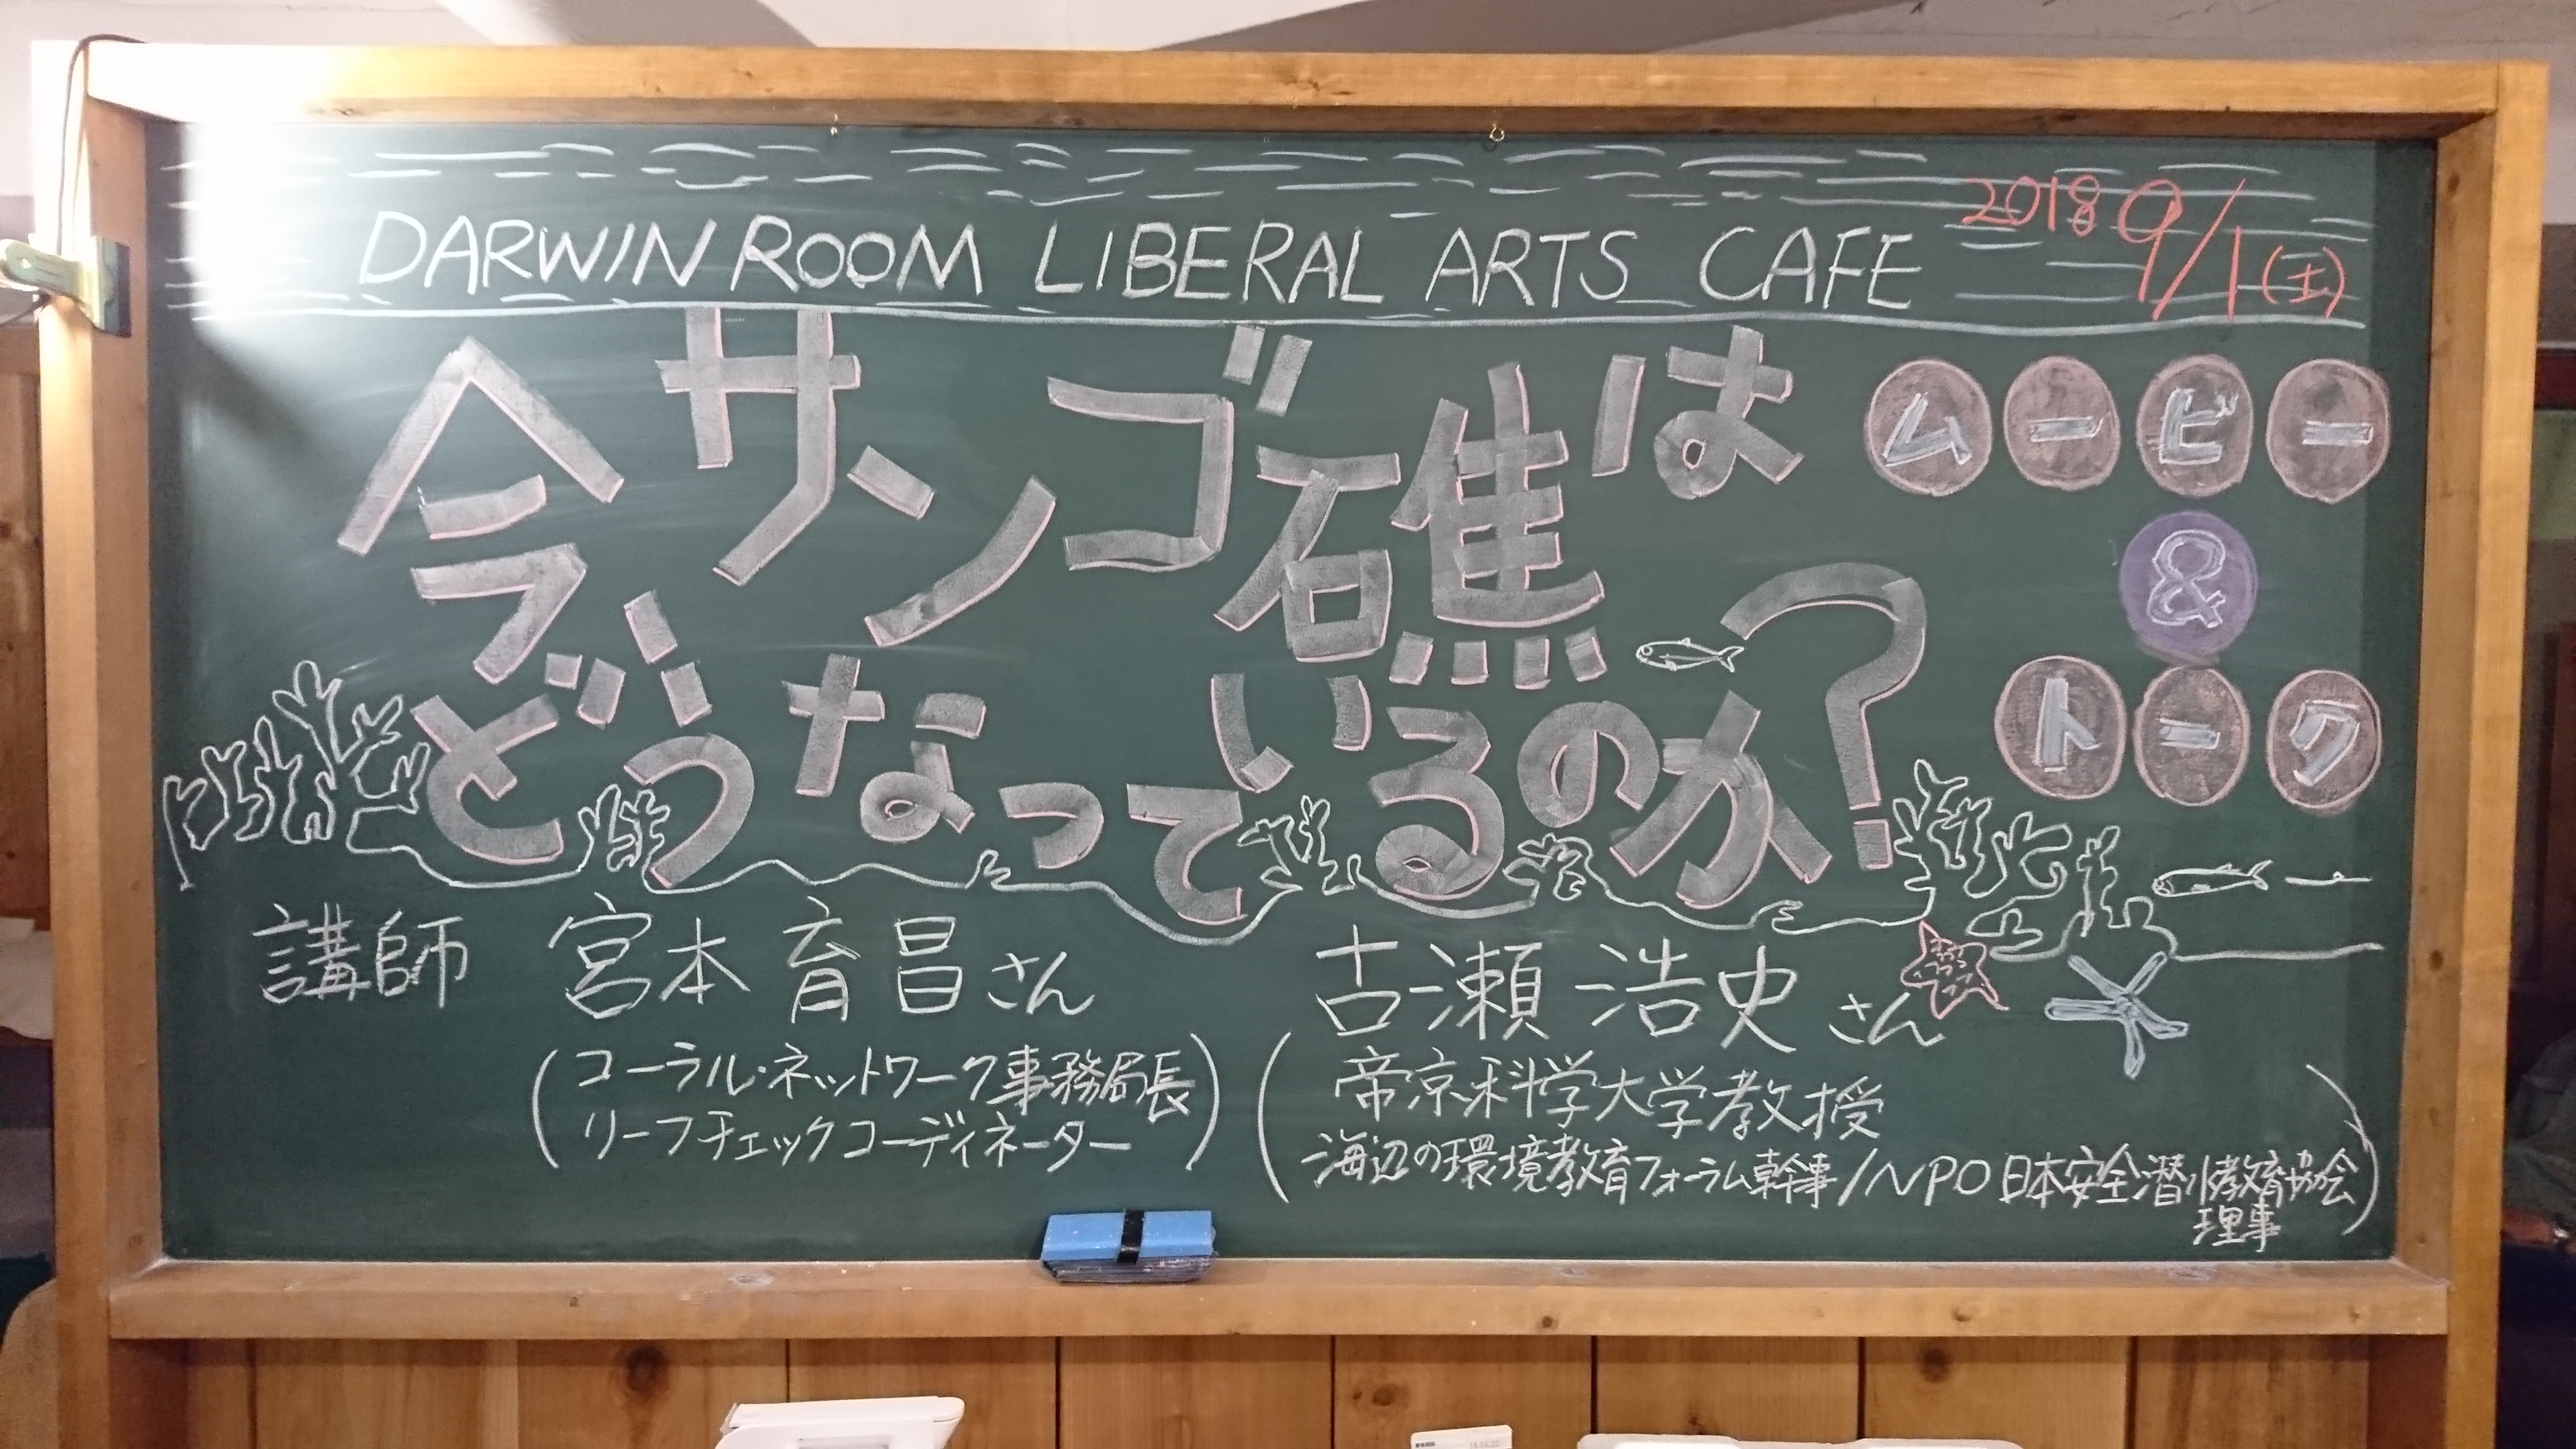 DARWIN ROOM LIBERAL ARTS CAFE
2018 9/1(土)
今サンゴ礁は
どうなっているのか?
ムービー
&
トーク
講師 宮本育昌さん
(コーラル・ネットワーク事務局長
リーフチェックコーディネーター)
古瀬浩史さん
(帝京科学大学教授
海辺の環境教育フォーラム幹事/NPO日本安全潜水教育協会
理事)